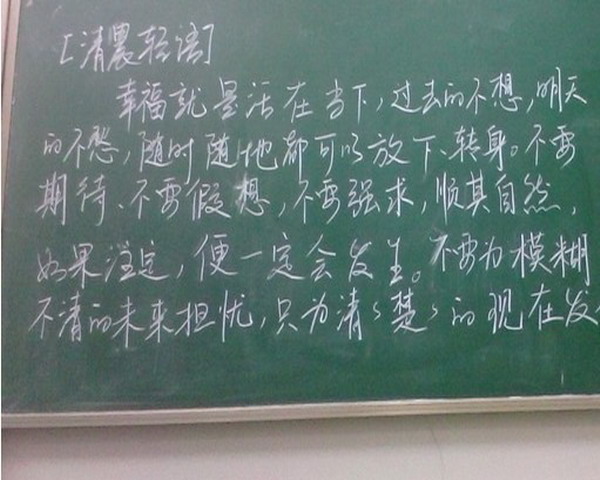 [清晨轻语]
幸福就是活在当下，过去的不想，明天
的不愁，随时随地都可以放下、转身。不要
期待、不要假想，不要强求，顺其自然，
如果注定，便一定会发生。不要为模糊
不清的未来担忧，只为清々楚々的现在发